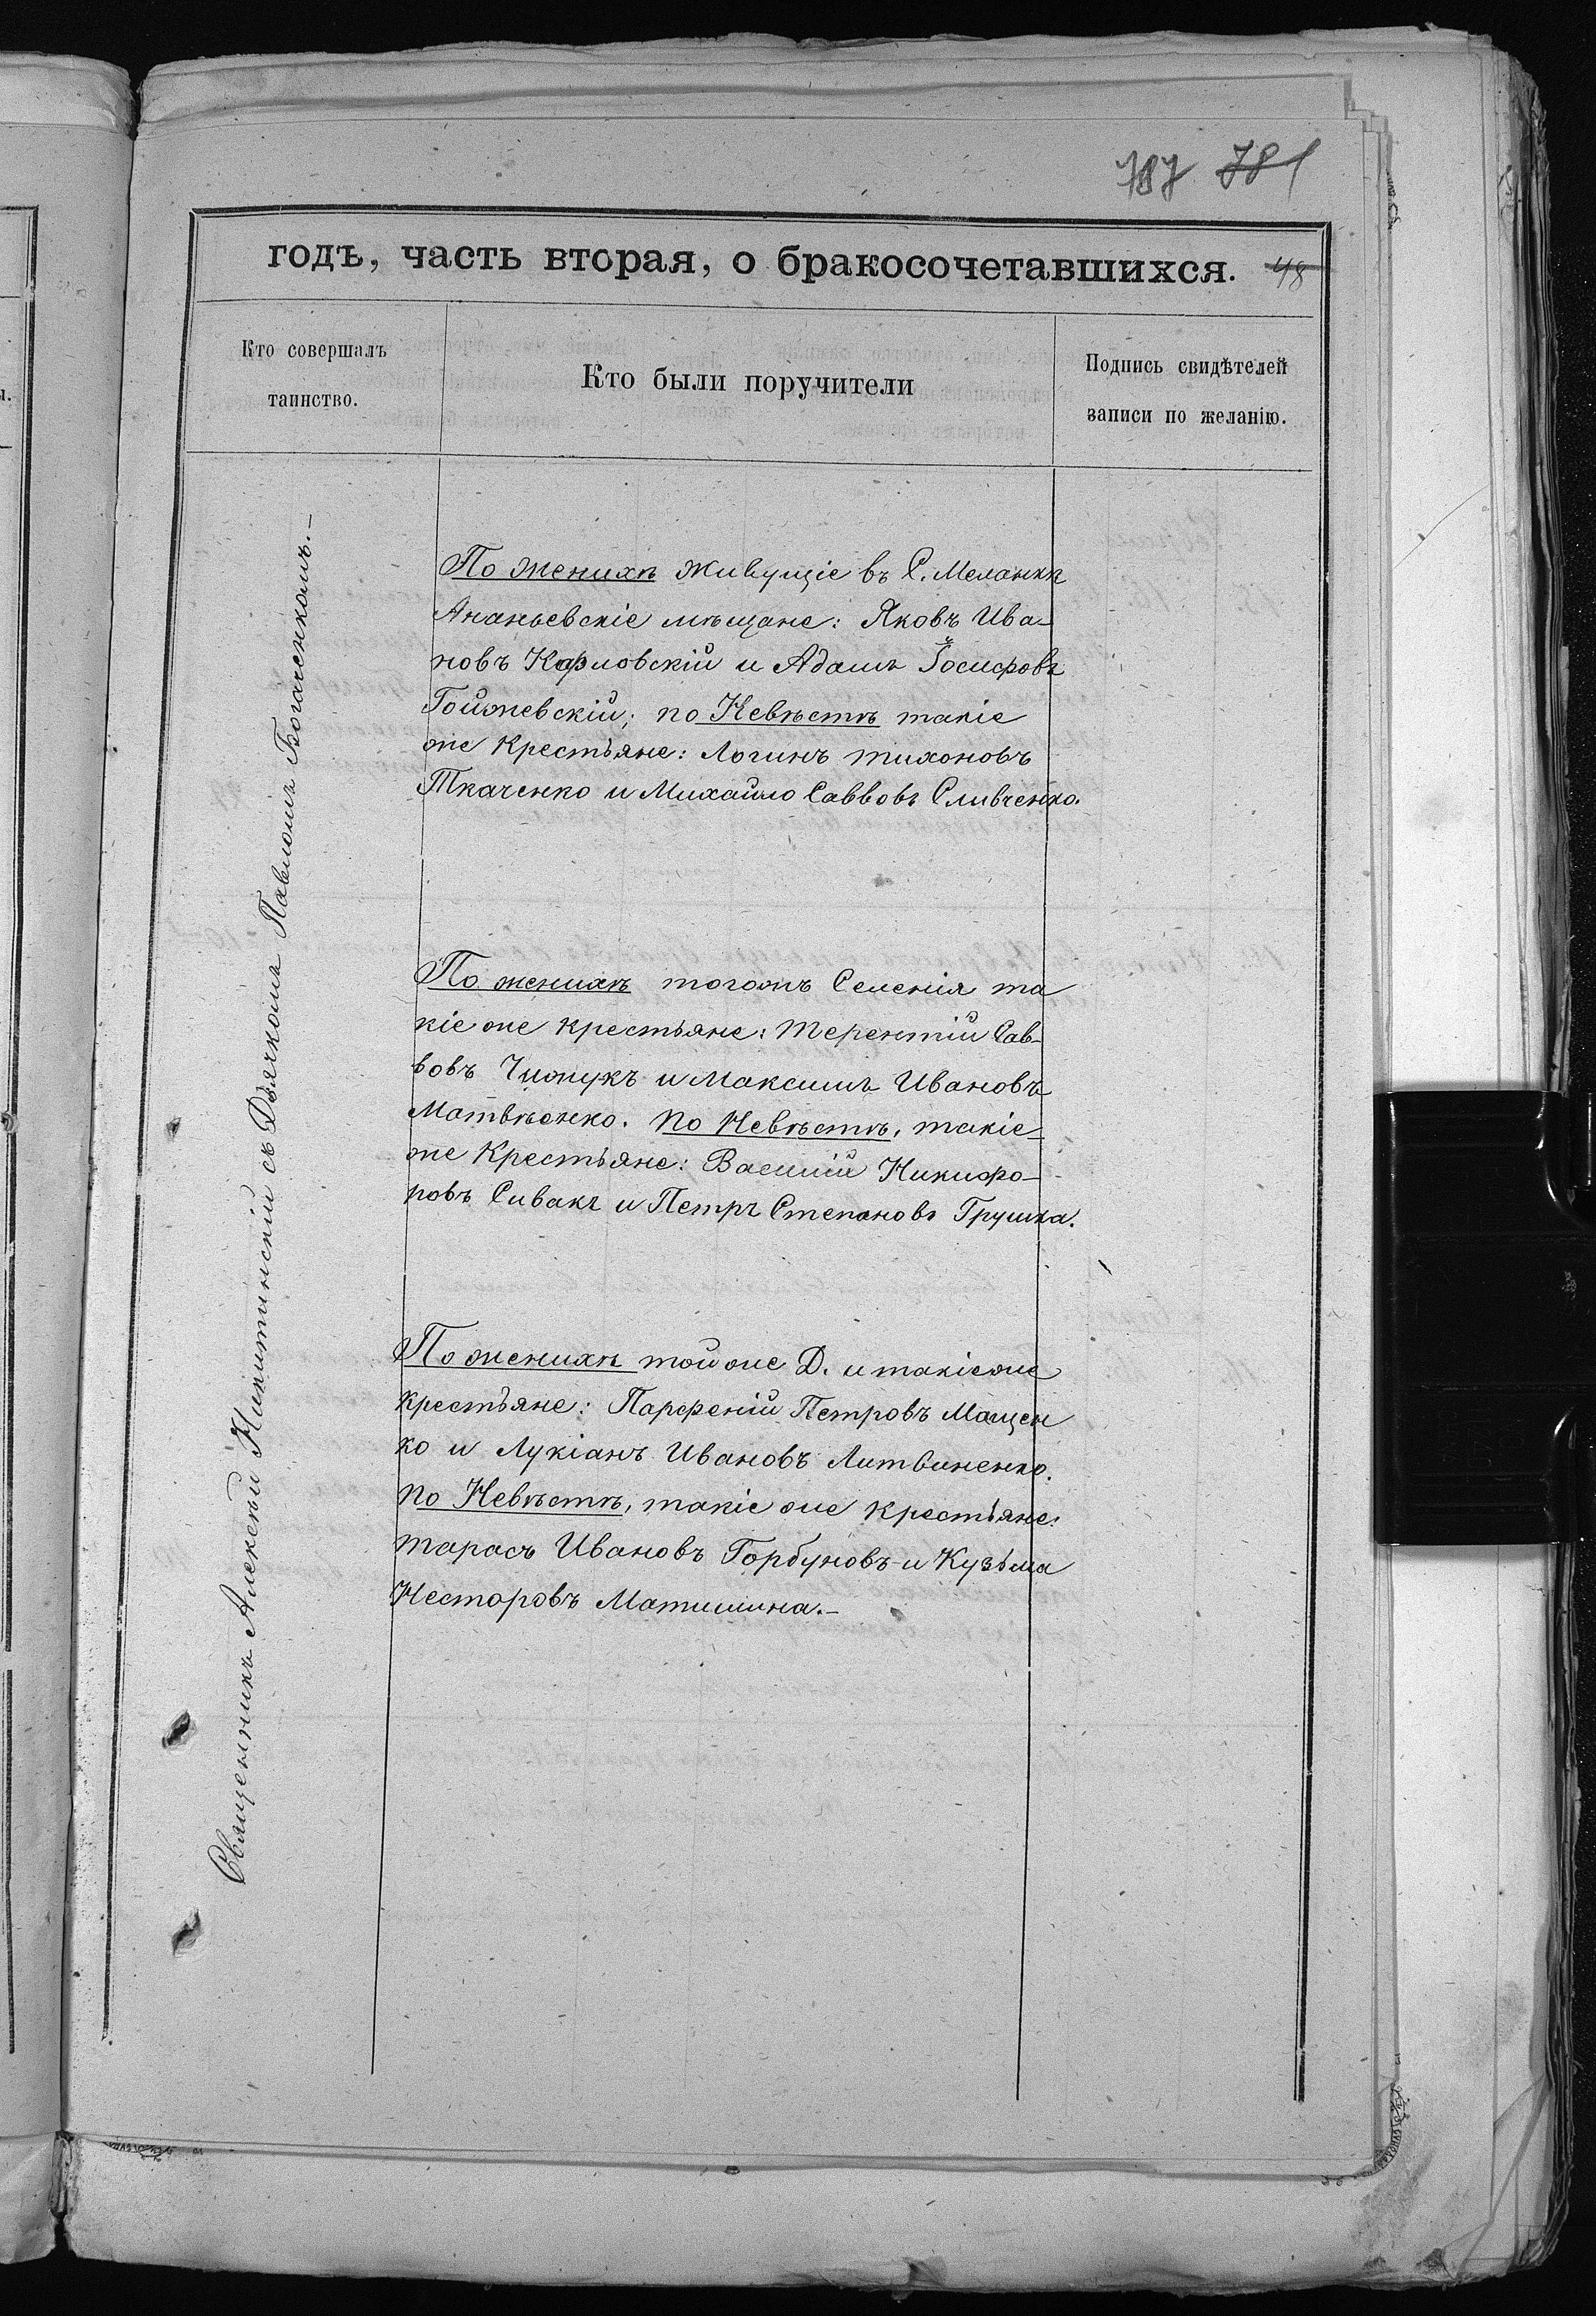 787 781
годъ, часть вторая, о бракосочетавшихся. 48
Кто совершалъ
таинство.
Кто были поручители
Подпись свидѣтелей
записи по желанію.
Священникъ Алексѣй Никитинскій съ Дьячкомъ Павломъ Богаченкомъ.-
По женихѣ живущіе въ С. Меланкѣ
Ананьевскіе мѣщане: Яковъ Ива-
новъ Карловскій и Адамъ Іосифовъ
Гойжевскій; по Невѣстѣ такіе
же Крестьяне: Логинъ Тихоновъ
Ткаченко и Михайло Саввовъ Сливченко.
По женихѣ тогожъ Селенія та
кіе же крестьяне: Терентій Сав-
вовъ Чижукъ и Максимъ Ивановъ
Матвѣенко. По Невѣстѣ, такіе-
же Крестьяне: Василій Никифо-
ровъ Сивакъ и Петръ Степановъ Грушка.
По женихѣ той же Д. и такіеже
крестьяне: Парфеній Петровъ Мащен
ко и Лукіанъ Ивановъ Литвиненко.
По Невѣстѣ, такіе же крестьяне:
Тарасъ Ивановъ Горбуновъ и Кузьма
Несторовъ Матишина.-